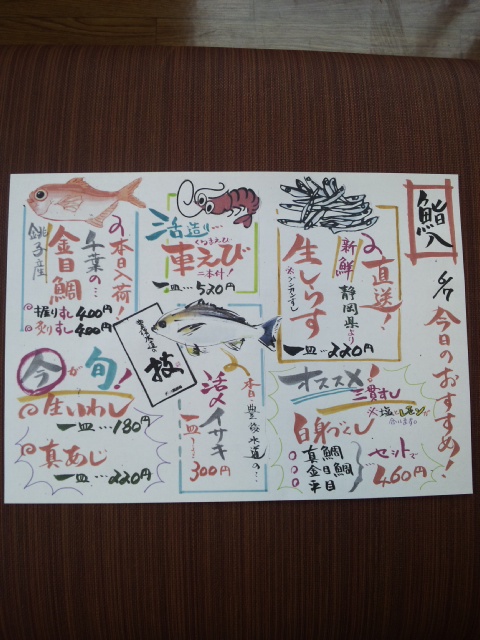 鮨
今日のおすすめ!
直送!
新鮮 静岡県より
生しらす
※グンカンずし
一皿…220円
オススメ!
三貫ずし
白身づくし
真鯛
金目鯛
平目
セットで
460円
活造り…
くるまえび
車えび
二本付!
一皿…520円
技
本日…豊後水道の…
活〆イサキ
一皿…
300円
本日入荷!
千葉の…
金目鯛
銚子産
握りずし 400円
炙りずし 400円
今が旬!
生いわし
一皿…180円
真あじ
一皿…220円